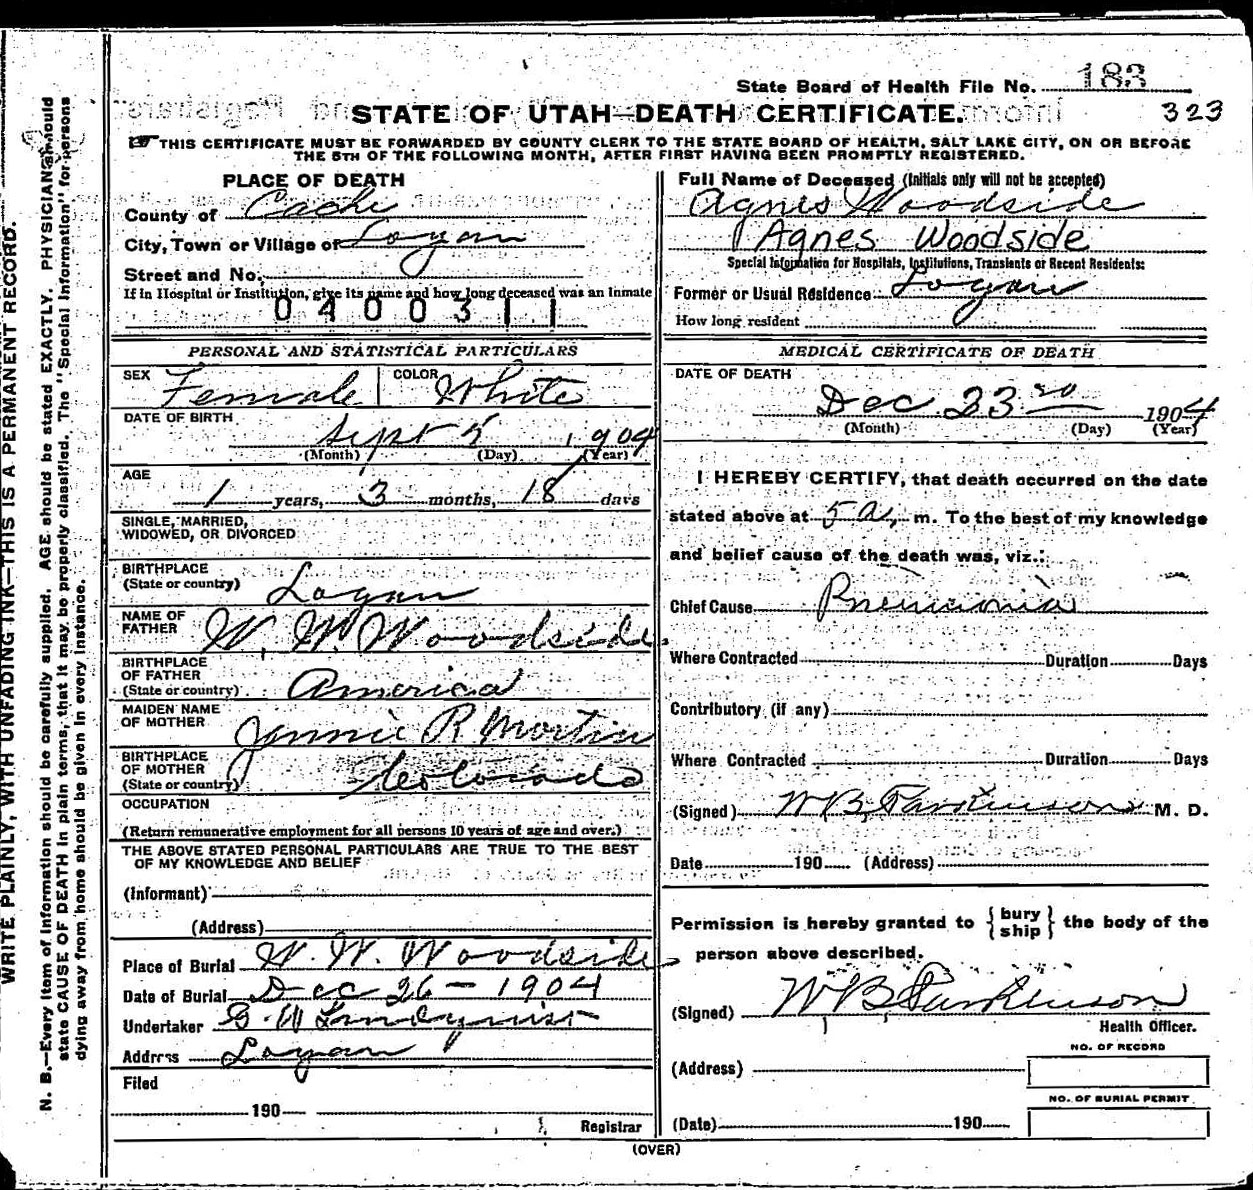 WRITE PLAINLY, WITH UNFADING INK—THIS IS A PERMANENT RECORD.
N. B.—Every item of information should be carefully supplied. AGE should be stated EXACTLY. PHYSICIANS should
state CAUSE OF DEATH in plain terms, that it may be properly classified. The "Special Information" for persons
dying away from home should be given in every instance.
State Board of Health File No. 183
323
STATE OF UTAH—DEATH CERTIFICATE.
THIS CERTIFICATE MUST BE FORWARDED BY COUNTY CLERK TO THE STATE BOARD OF HEALTH, SALT LAKE CITY, ON OR BEFORE
THE 5TH OF THE FOLLOWING MONTH, AFTER FIRST HAVING BEEN PROMPTLY REGISTERED.
PLACE OF DEATH
County of Cache
City, Town or Village of Logan
Street and No.
If in Hospital or Institution, give its name and how long deceased was an inmate
0400311
PERSONAL AND STATISTICAL PARTICULARS
SEX Female COLOR White
DATE OF BIRTH
Sept 5 1904
(Month) (Day) (Year)
AGE
1 years, 3 months, 18 days
SINGLE, MARRIED,
WIDOWED, OR DIVORCED
BIRTHPLACE
(State or country) Logan
NAME OF
FATHER W. W. Woodside
BIRTHPLACE
OF FATHER
(State or country) America
MAIDEN NAME
OF MOTHER Jennie R Martin
BIRTHPLACE
OF MOTHER
(State or country) Colorado
OCCUPATION
(Return remunerative employment for all persons 10 years of age and over.)
THE ABOVE STATED PERSONAL PARTICULARS ARE TRUE TO THE BEST
OF MY KNOWLEDGE AND BELIEF
(Informant)
(Address)
Place of Burial W. W. Woodside
Date of Burial Dec 26 - 1904
Undertaker G. W Lindquist
Address Logan
Filed
190
Registrar
Full Name of Deceased (Initials only will not be accepted)
Agnes Woodside
Agnes Woodside
Special Information for Hospitals, Institutions, Transients or Recent Residents:
Former or Usual Residence Logan
How long resident
MEDICAL CERTIFICATE OF DEATH
DATE OF DEATH
Dec 23rd 1904
(Month) (Day) (Year)
I HEREBY CERTIFY, that death occurred on the date
stated above at 5 a, m. To the best of my knowledge
and belief cause of the death was, viz.:
Chief Cause Pneumonia
Where Contracted Duration Days
Contributory (if any)
Where Contracted Duration Days
(Signed) W B, Parkinson M. D.
Date 190 (Address)
Permission is hereby granted to { bury ship } the body of the
person above described.
(Signed) W B, Parkinson
Health Officer.
NO. OF RECORD
(Address)
NO. OF BURIAL PERMIT
(Date) 190
(OVER)